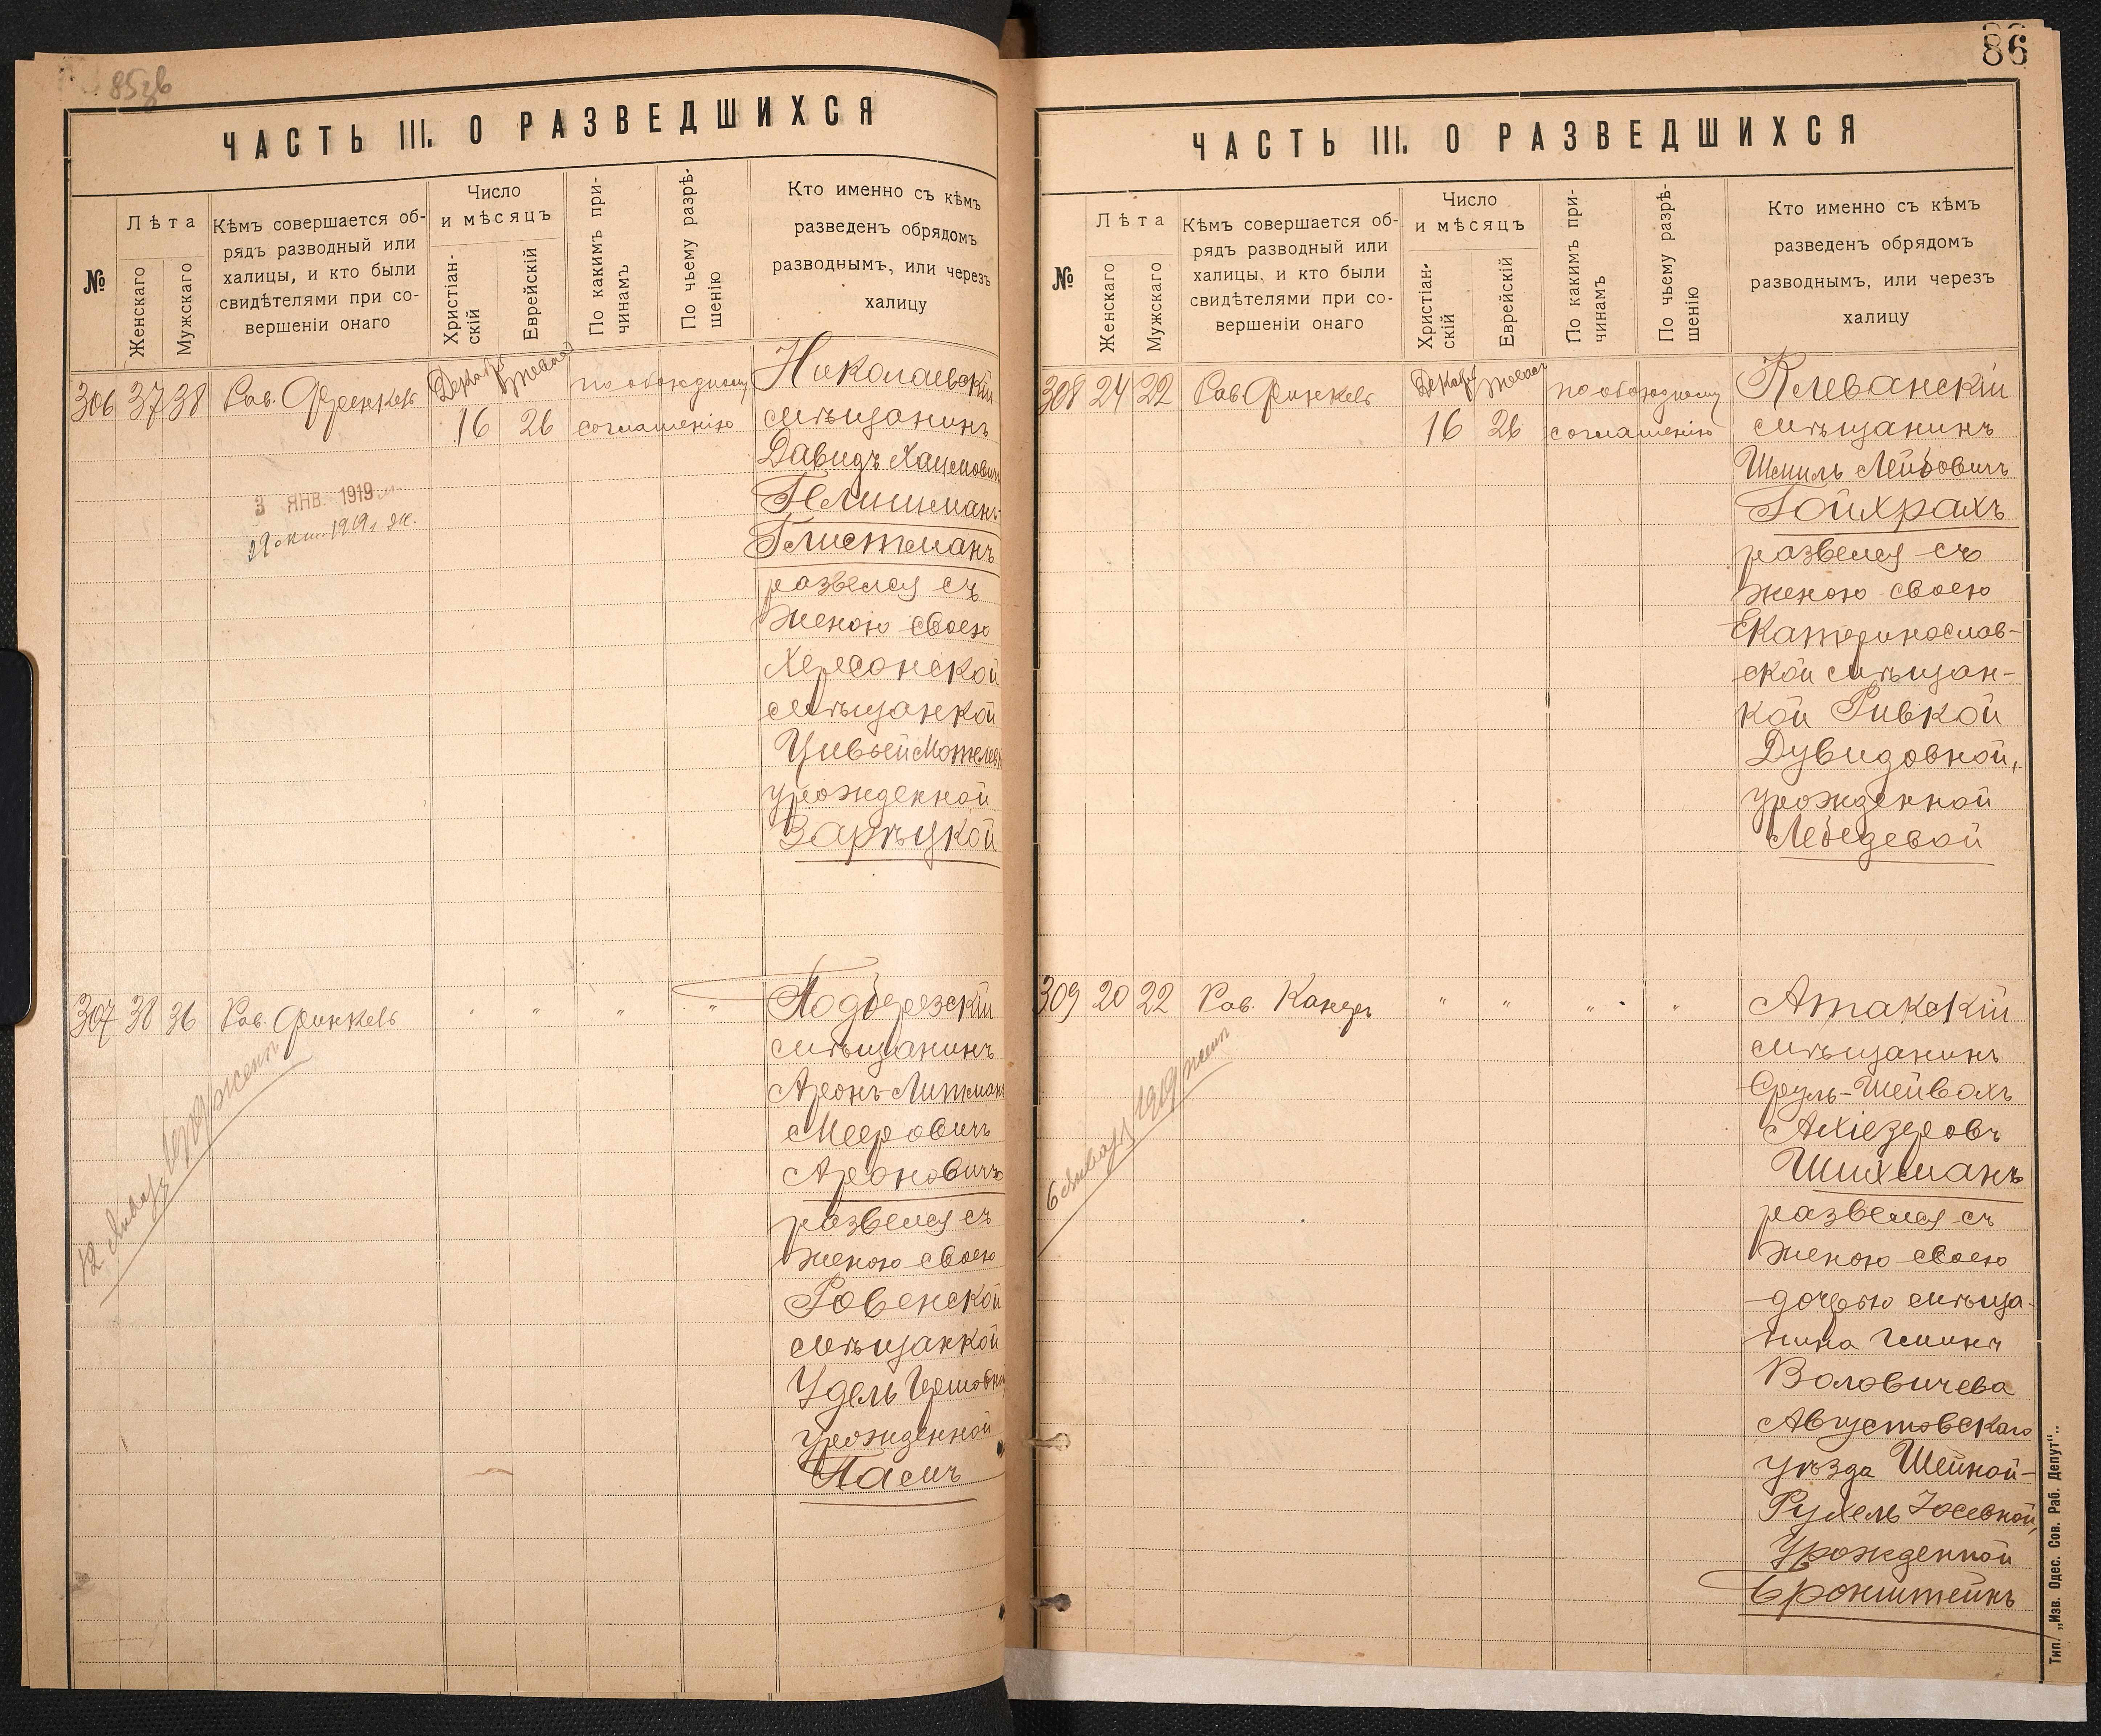 85зв
ЧАСТЬ III. О РАЗВЕДШИХСЯ
№
Лѣта
Женскаго
Мужскаго
Кѣмъ совершается об-
рядъ разводный или
халицы, и кто были
свидѣтелями при со-
вершеніи онаго
Число
и мѣсяцъ
Христіан-
скій
Еврейскій
По какимъ при-
чинамъ
По чьему разрѣ-
шенію
Кто именно съ кѣмъ
разведенъ обрядомъ
разводнымъ, или через
халицу
306 37 38 Рав. Френкель
Декабрь
16 26
по обоюдному
соглашенію
Николаевскій
мѣщанинъ
Давидъ Хацкелович
Глишманъ-
Глистманъ
развелся съ
женою своею
Херсонской
мѣщанкой
Цивьей
урожденной
Зарѣцкой
3 ЯНВ. 1919
29 1919 г.
307 38 36 Рав. Финкель " " " "
12 Январ 1919 жен
Подберезскій
мѣщанинъ
Аронъ-Литманъ
Мееровичъ
Ароновичъ
развелся съ
женою своею
Ровенской
мѣщанкой
Удель Гершовной
урожденной
Пасмъ
86
ЧАСТЬ III. О РАЗВЕДШИХСЯ
№
Лѣта
Женскаго
Мужскаго
Кѣмъ совершается об-
рядъ разводный или
халицы, и кто были
свидѣтелями при со-
вершеніи онаго
Число
и мѣсяцъ
Христіан-
скій
Еврейскій
По какимъ при-
чинамъ
По чьему разрѣ-
шенію
Кто именно съ кѣмъ
разведенъ обрядомъ
разводнымъ, или черезъ
халицу
308 24 22 Рав. Финкель
Декабрь
16 26
по обоюдному
соглашенію
Клеванскій
мѣщанинъ
Шмиль Лейбовичъ
Гойхрахъ
развелся съ
женою своею
Екатеринослав-
ской мѣщан-
кой Ривкой
Дувидовной,
урожденной
Лебедевой
309 20 22 Рав. Канеръ " " " "
6 Январ 1919 жен
Атакскій
мѣщанинъ
Сруль-Шейвахъ
Ахіезеровъ
Шихманъ
развелся съ
женою своею
дочерью мѣща-
нина гмины
Воловичева
Августовскаго
уѣзда Шейной-
Рухель Іосевной,
Урожденной
Бронштейнъ
Тип. „Изв. Одес. Сов. Раб. Депут“.